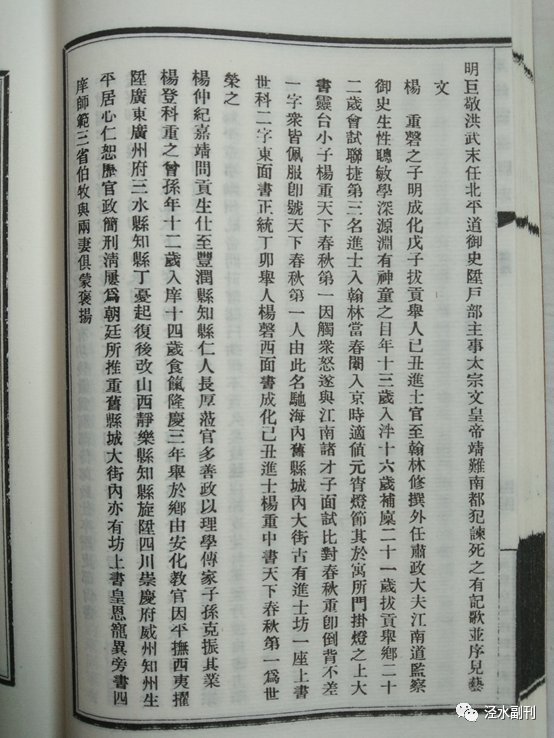 明巨敬洪武末任北平道御史陞戶部主事太宗文皇帝靖難南都犯諫死之有記歌並序見藝
文
楊　重磬之子明成化戊子拔貢舉人己丑進士官至翰林修撰外任肅政大夫江南道監察
御史生性聰敏學深源淵有神童之目年十三歲入泮十六歲補廩二十一歲拔貢舉鄉二十
二歲會試聯捷第三名進士入翰林當春闈入京時適值元宵燈節其於寓所門掛燈之上大
書靈台小子楊重天下春秋第一因觸衆怒遂與江南諸才子面試比對春秋重卽倒背不差
一字衆皆佩服卽號天下春秋第一人由此名馳海內舊縣城內大街古有進士坊一座上書
世科二字東面書正統丁卯舉人楊磬西面書成化己丑進士楊重中書天下春秋第一爲世
榮之
楊仲紀嘉靖間貢生仕至豐潤縣知縣仁人長厚蒞官多善政以理學傳家子孫克振其業
楊登科重之曾孫年十二歲入庠十四歲食餼隆慶三年舉於鄉由安化教官因平撫西夷擢
陞廣東廣州府三水縣知縣丁憂起復後改山西靜樂縣知縣旋陞四川崇慶府威州知州生
平居心仁恕歷官政簡刑清屢爲朝廷所推重舊縣城大街內亦有坊上書皇恩寵異旁書四
庠師範三省伯牧與兩妻俱蒙褒揚
泾水副刊